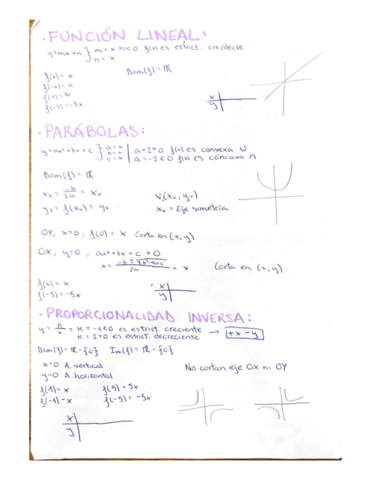 · FUNCIÓN LINEAL:
y=mx+n } m = x >/< 0 f(x) es estrict. cre/decre
n = x
f(0) = x
Dom(f) = ℝ
x
y
f(-5) = -5x
· PARÁBOLAS:
y=ax²+bx+c } a = x | a=2>0 f(x) es convexa ∪
b = x
c = x | a=-2<0 f(x) es cóncava ∩
Dom(f) = ℝ
xv = -b/2a = xv V(xv, yv)
yv = f(xv) = yv xv = Eje simetría
OY, x=0, f(0) = x Corta en (x,y)
OX, y=0, ax²+bx+c = 0
x = -b ± √b²-4ac / 2a = x Corta en (x,y)
f(x) = x
f(-5) = -5x
x
y
· PROPORCIONALIDAD INVERSA:
y = K/x = K = -1<0 es estrict. creciente → +x-y
K = 2>0 es estrict. decreciente
Dom(f) = ℝ - {0} Im(f) = ℝ - {0}
x=0 A. vertical No cortan eje OX ni OY
y=0 A. horizontal
f(1) = x f(5) = 5x
f(-1) = x f(-5) = -5x
x
y